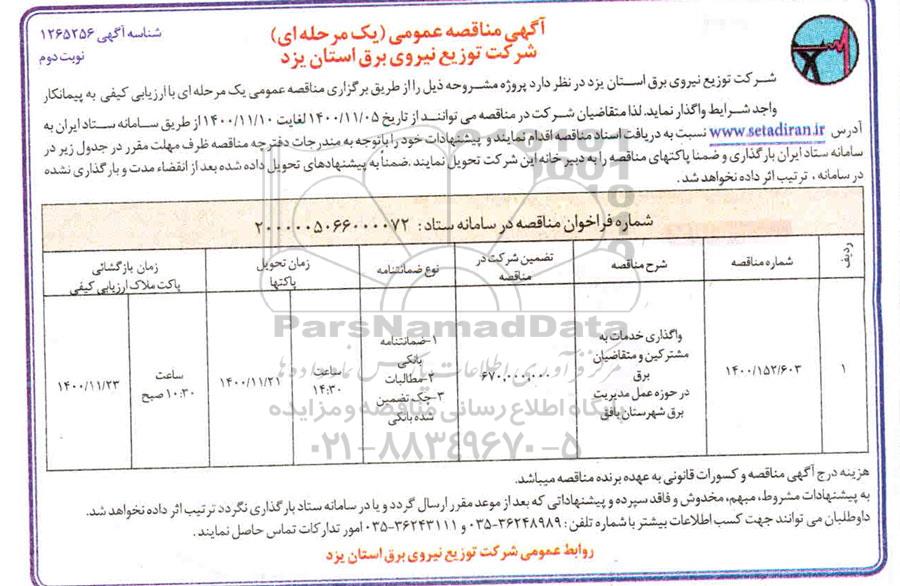 آگهی مناقصه عمومی (یک مرحله ای)
شرکت توزیع نیروی برق استان یزد
شناسه آگهی ۱۲۶۵۲۵۶
نوبت دوم
شرکت توزیع نیروی برق استان یزد در نظر دارد پروژه مشروحه ذیل را از طریق برگزاری مناقصه عمومی یک مرحله ای با ارزیابی کیفی به پیمانکار
واجد شرایط واگذار نماید. لذا متقاضیان شرکت در مناقصه می توانند از تاریخ ۱۴۰۰/۱۱/۰۵ لغایت ۱۴۰۰/۱۱/۱۰ از طریق سامانه ستاد ایران به
آدرس www.setadiran.ir نسبت به دریافت اسناد مناقصه اقدام نمایند و پیشنهادات خود را باتوجه به مندرجات دفترچه مناقصه ظرف مهلت مقرر در جدول زیر در
سامانه ستاد ایران بارگذاری و ضمنا پاکتهای مناقصه را به دبیر خانه این شرکت تحویل نمایند. ضمناً به پیشنهادهای تحویل داده شده بعد از انقضاء مدت و بارگذاری نشده
در سامانه، ترتیب اثر داده نخواهد شد.
شماره فراخوان مناقصه در سامانه ستاد: ۲۰۰۰۰۰۵۰۶۶۰۰۰۰۷۲
ردیف
شماره مناقصه
شرح مناقصه
تضمین شرکت در
مناقصه
نوع ضمانتنامه
زمان تحویل
پاکتها
زمان بازگشائی
پاکت ملاک ارزیابی کیفی
۱
۱۴۰۰/۱۵۲/۶۰۳
واگذاری خدمات به
مشترکین و متقاضیان
برق
در حوزه عمل مدیریت
برق شهرستان بافق
۶۷۰,۰۰۰,۰۰۰
۱-ضمانتنامه
بانکی
۲-مطالبات
۳-چک تضمین
شده بانکی
ساعت
۱۴:۳۰
۱۴۰۰/۱۱/۲۱
ساعت
۱۰:۳۰ صبح
۱۴۰۰/۱۱/۲۳
ParsNamadData
مرکز فرآوری اطلاعات پارس نماد داده ها
پایگاه اطلاع رسانی مناقصه و مزایده
۰۲۱-۸۸۳۴۹۶۷۰-۵
هزینه درج آگهی مناقصه و کسورات قانونی به عهده برنده مناقصه میباشد.
به پیشنهادات مشروط، مبهم، مخدوش و فاقد سپرده و پیشنهاداتی که بعد از موعد مقرر ارسال گردد و یا در سامانه ستاد بارگذاری نگردد ترتیب اثر داده نخواهد شد.
داوطلبان می توانند جهت کسب اطلاعات بیشتر با شماره تلفن: ۳۶۲۴۸۹۸۹-۰۳۵ و ۳۶۲۴۳۱۱۱-۰۳۵ امور تدارکات تماس حاصل نمایند.
روابط عمومی شرکت توزیع نیروی برق استان یزد